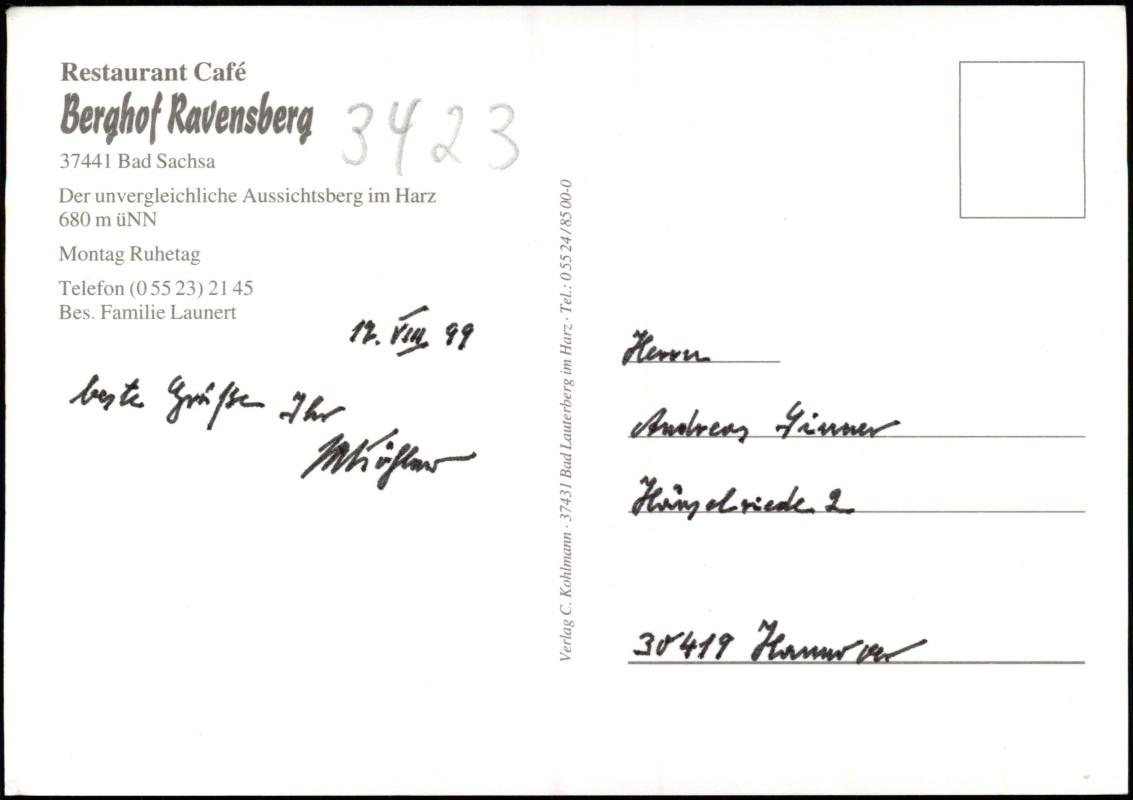 Restaurant Café
Berghof Ravensberg
3423
37441 Bad Sachsa
Der unvergleichliche Aussichtsberg im Harz
680 m üNN
Montag Ruhetag
Telefon (0 55 23) 21 45
Bes. Familie Launert
12. VIII. 99
beste Grüße Ihr
Verlag C. Kohlmann · 37431 Bad Lauterberg im Harz · Tel.: 0 55 24 / 85 00-0
Herrn
Andreas
Hänselriede 2
30419 Hannover